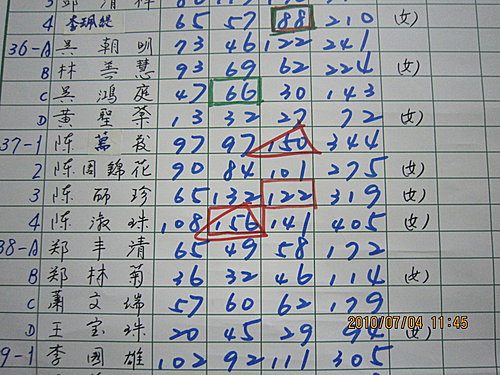 4 李珮緹 65 57 88 210 (女)
36-A 吳朝明 73 46 122 241
B 林善慧 93 69 62 224 (女)
C 吳鴻庭 47 66 30 143
D 黃聖棻 13 32 27 72 (女)
37-1 陳萬 97 97 150 344
2 陳周錦花 90 84 101 275 (女)
3 陳師珍 65 132 122 319 (女)
4 陳淑珠 108 156 141 405 (女)
38-A 郑丰清 65 49 58 172
B 郑林菊 36 32 46 114 (女)
C 蕭文瑞 57 60 62 179
D 王宝珠 20 45 29 94 (女)
9-1 李國雄 102 92 111 305
2010/07/04 11:45